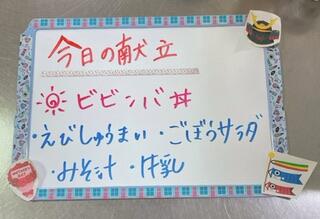 今日の献立
ビビンバ丼
・えびしゅうまい ・ごぼうサラダ
・みそ汁 ・牛乳